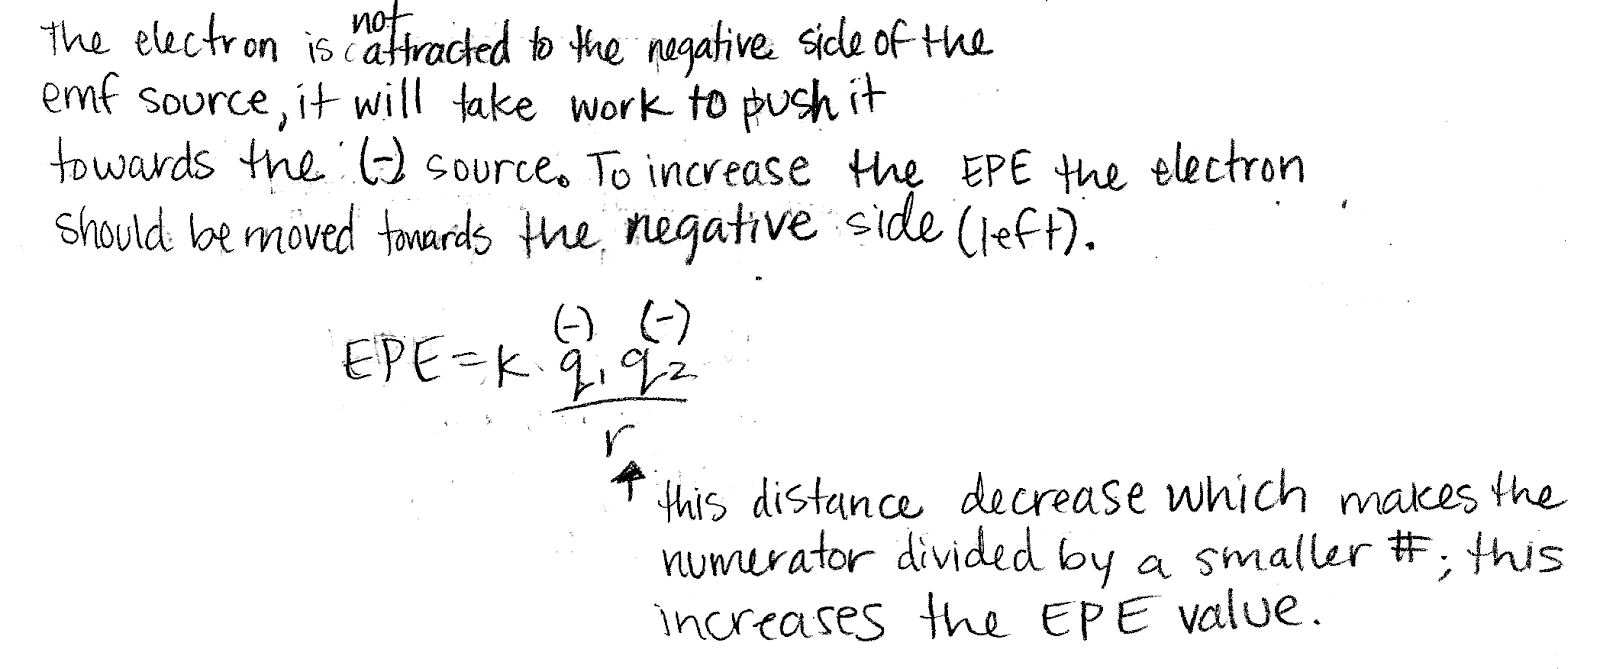 not
The electron is attracted to the negative side of the
emf source, it will take work to push it
towards the (-) source. To increase the EPE the electron
should be moved towards the negative side (left).
(-) (-)
EPE = k q1 q2
r
this distance decrease which makes the
numerator divided by a smaller #; this
increases the EPE value.